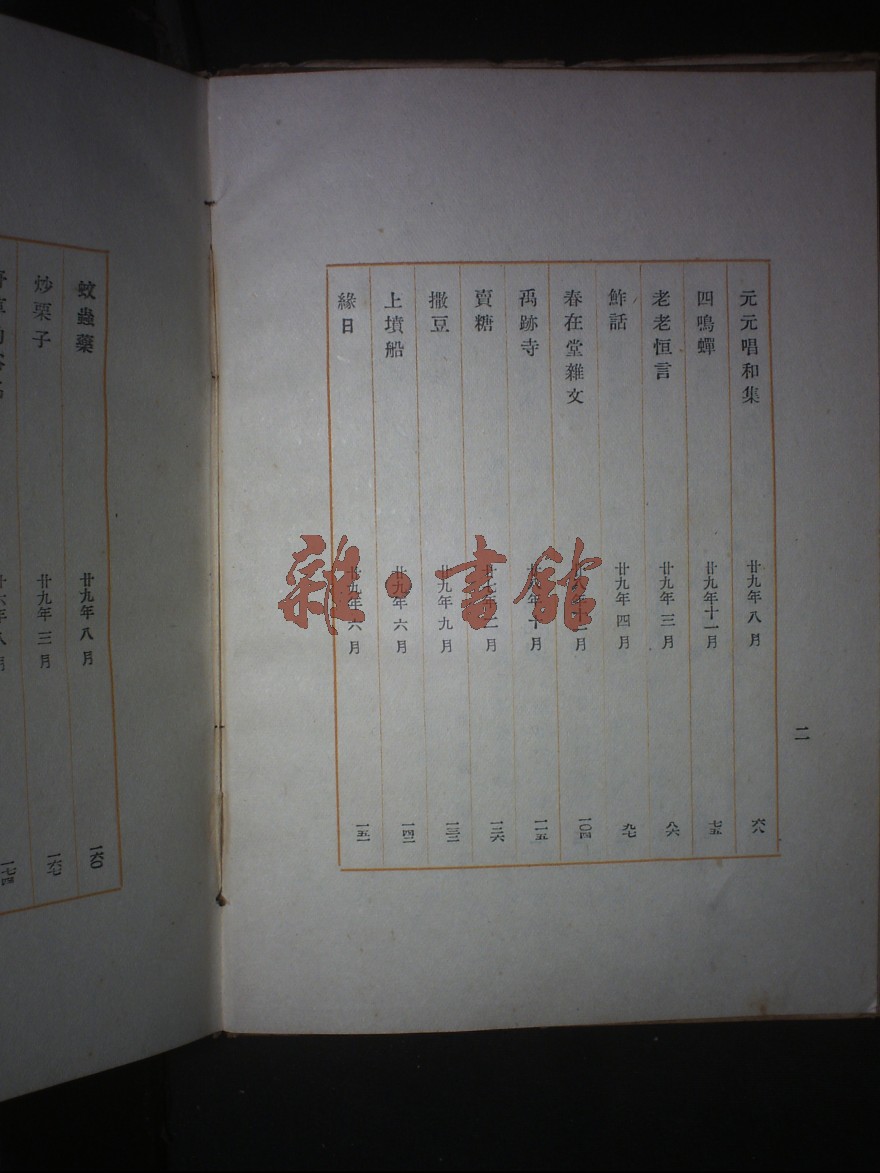 二
元元唱和集 廿九年八月 六八
四鳴蟬 廿九年十一月 七五
老老恒言 廿九年三月 八六
鮓話 廿九年四月 九七
春在堂雜文 月 一〇四
禹跡寺 十月 一一五
賣糖 二月 一二六
撒豆 廿九年九月 一三三
上墳船 廿九年六月 一四二
緣日 廿九年六月 一五一
蚊蟲藥 廿九年八月 一六〇
炒栗子 廿九年三月 一六七
廿六年八月 一七四
雜·書館